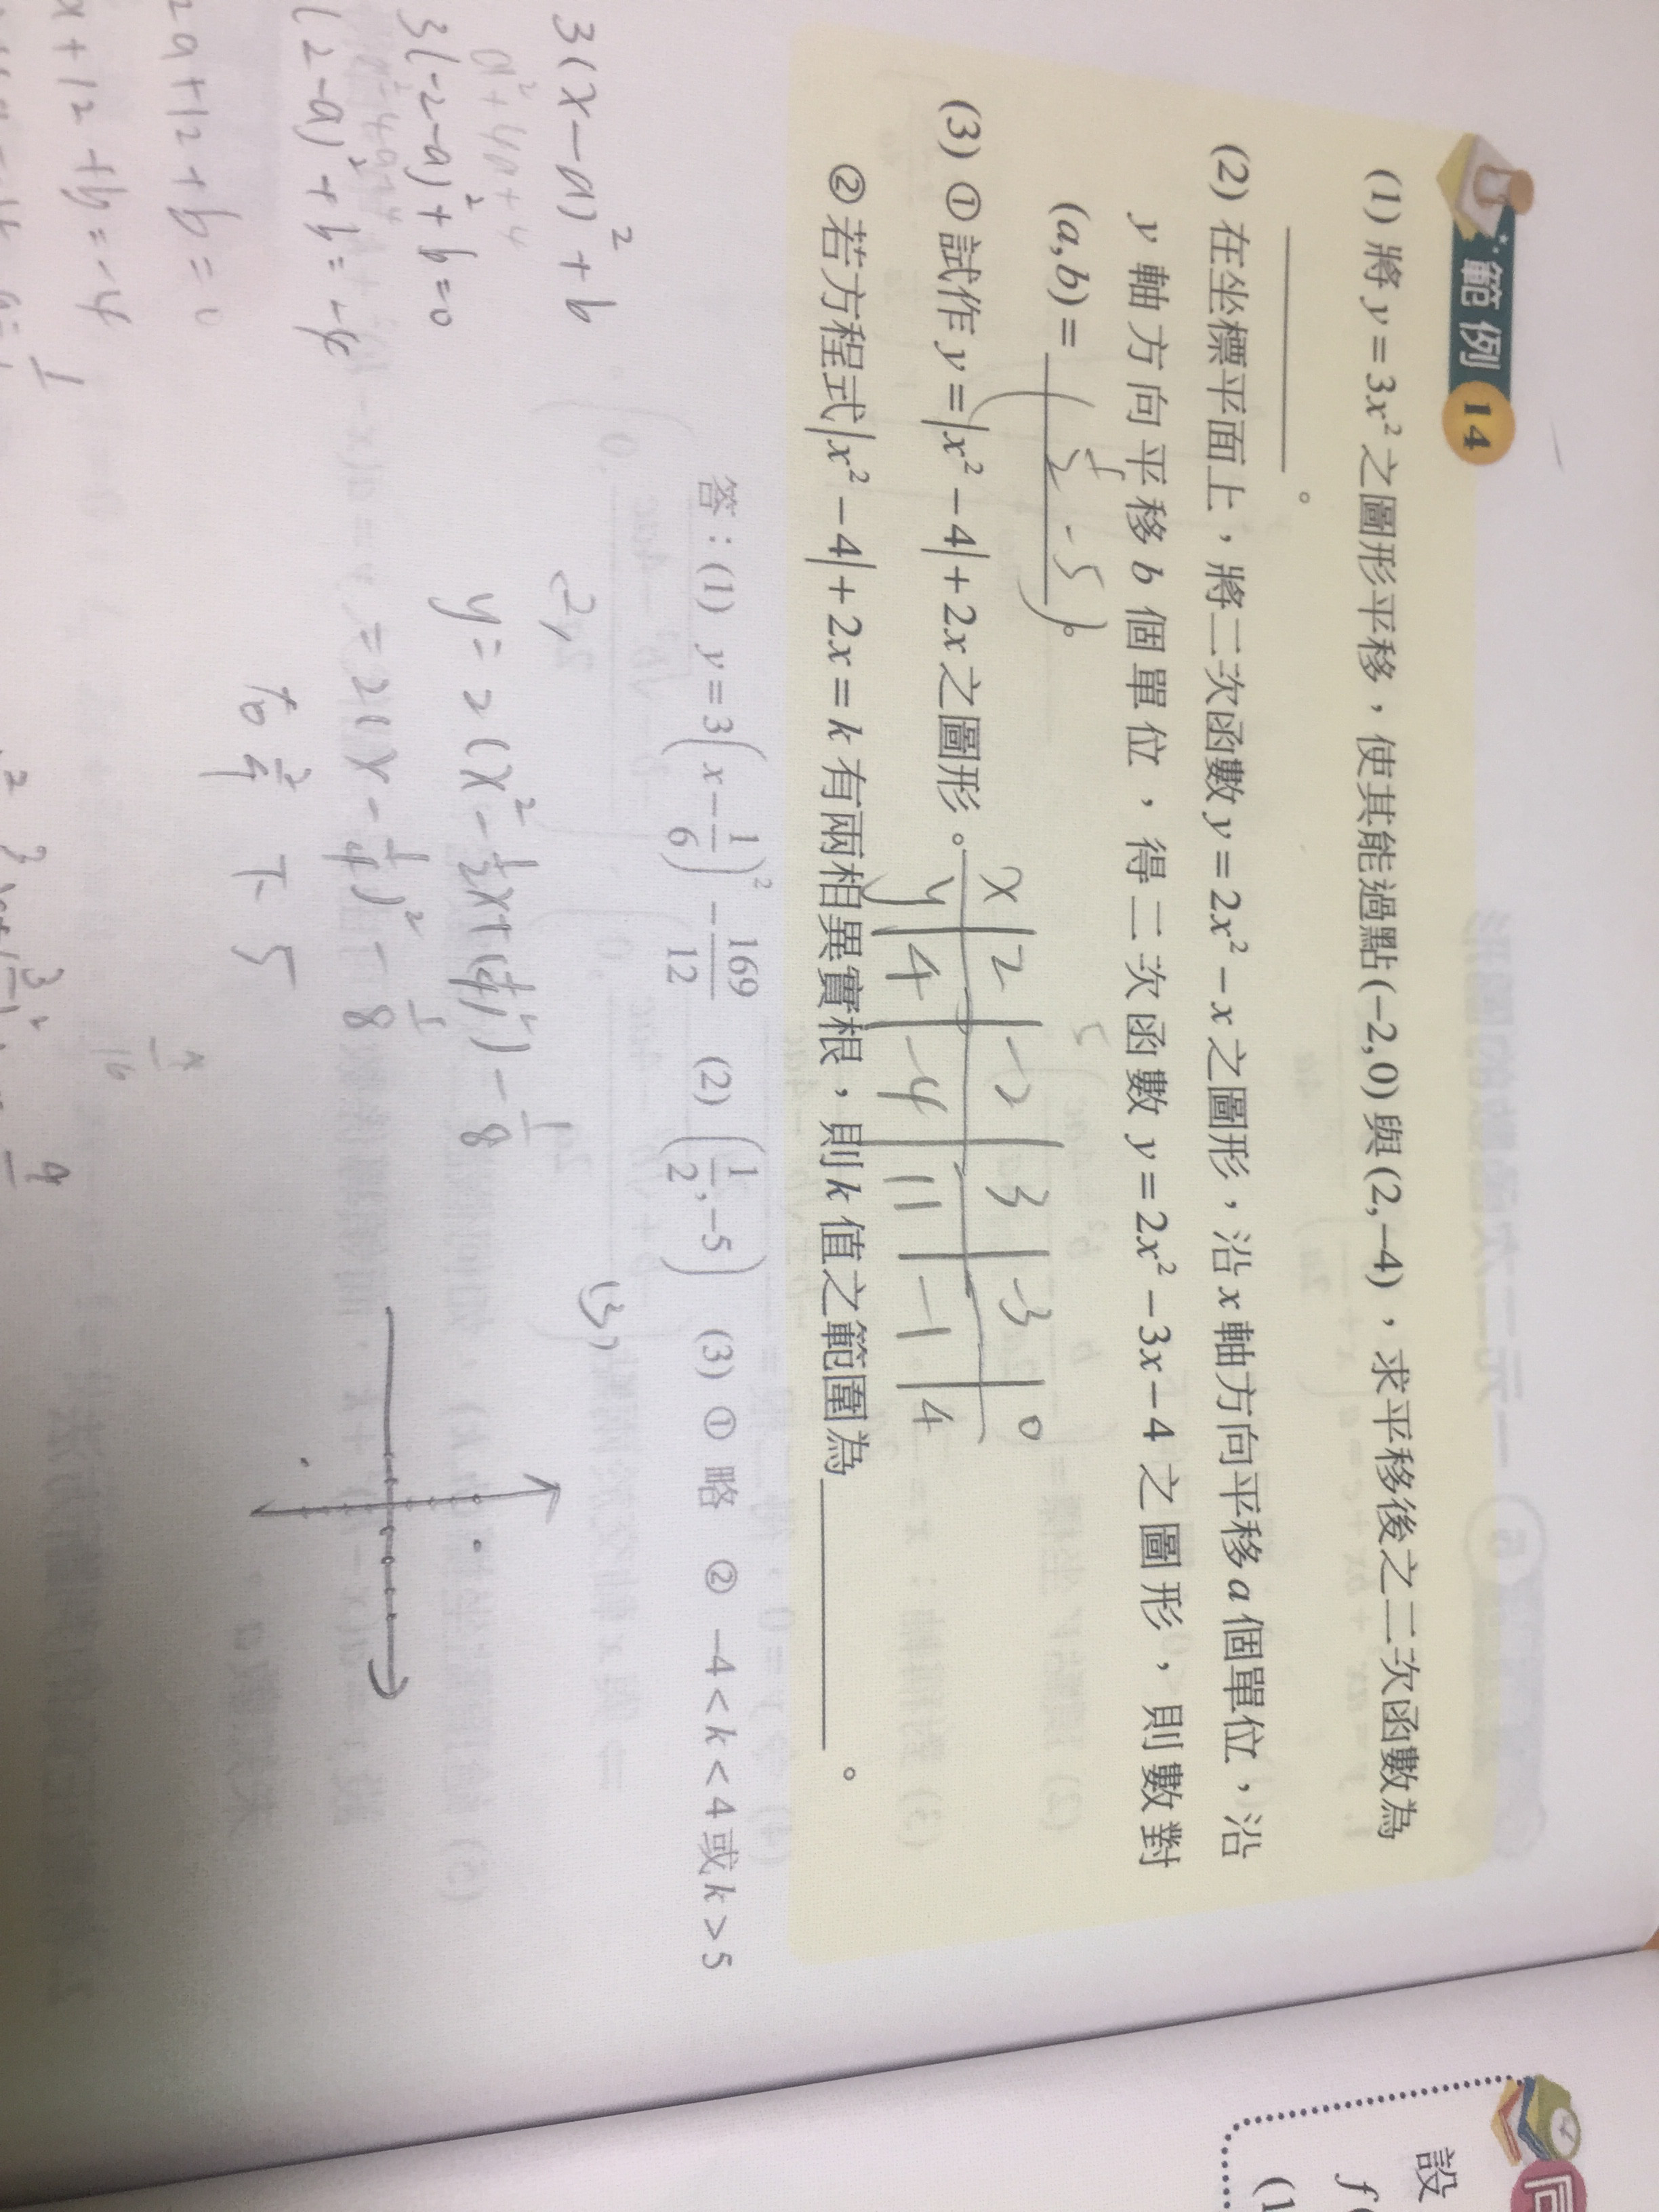 範例 14
(1) 將 y = 3x² 之圖形平移，使其能過點(−2,0)與(2,−4)，求平移後之二次函數為
________。
(2) 在坐標平面上，將二次函數 y = 2x² − x 之圖形，沿 x 軸方向平移 a 個單位，沿
y 軸方向平移 b 個單位，得二次函數 y = 2x² − 3x − 4 之圖形，則數對
(a,b) = (1/2 -5)。
(3) ①試作 y = |x² − 4| + 2x 之圖形。
x | 2 | -2 | 3 | -3 | 0
y | 4 | -4 | 11 | -1 | 4
②若方程式 |x² − 4| + 2x = k 有兩相異實根，則 k 值之範圍為________。
答：(1) y = 3(x − 1/6)² − 169/12 (2) (1/2, −5) (3) ① 略 ② −4 < k < 4 或 k > 5
3(x-a)²+b
a²+4a+4
3(-2-a)²+b=0
(2-a)²+b=-4
2a+12+b=0
x+12+b=-4
(2)
y=2(x²-1/2x+(1/4)²)-1/8
=2(x-1/4)²-1/8
右 下5
(3)
設